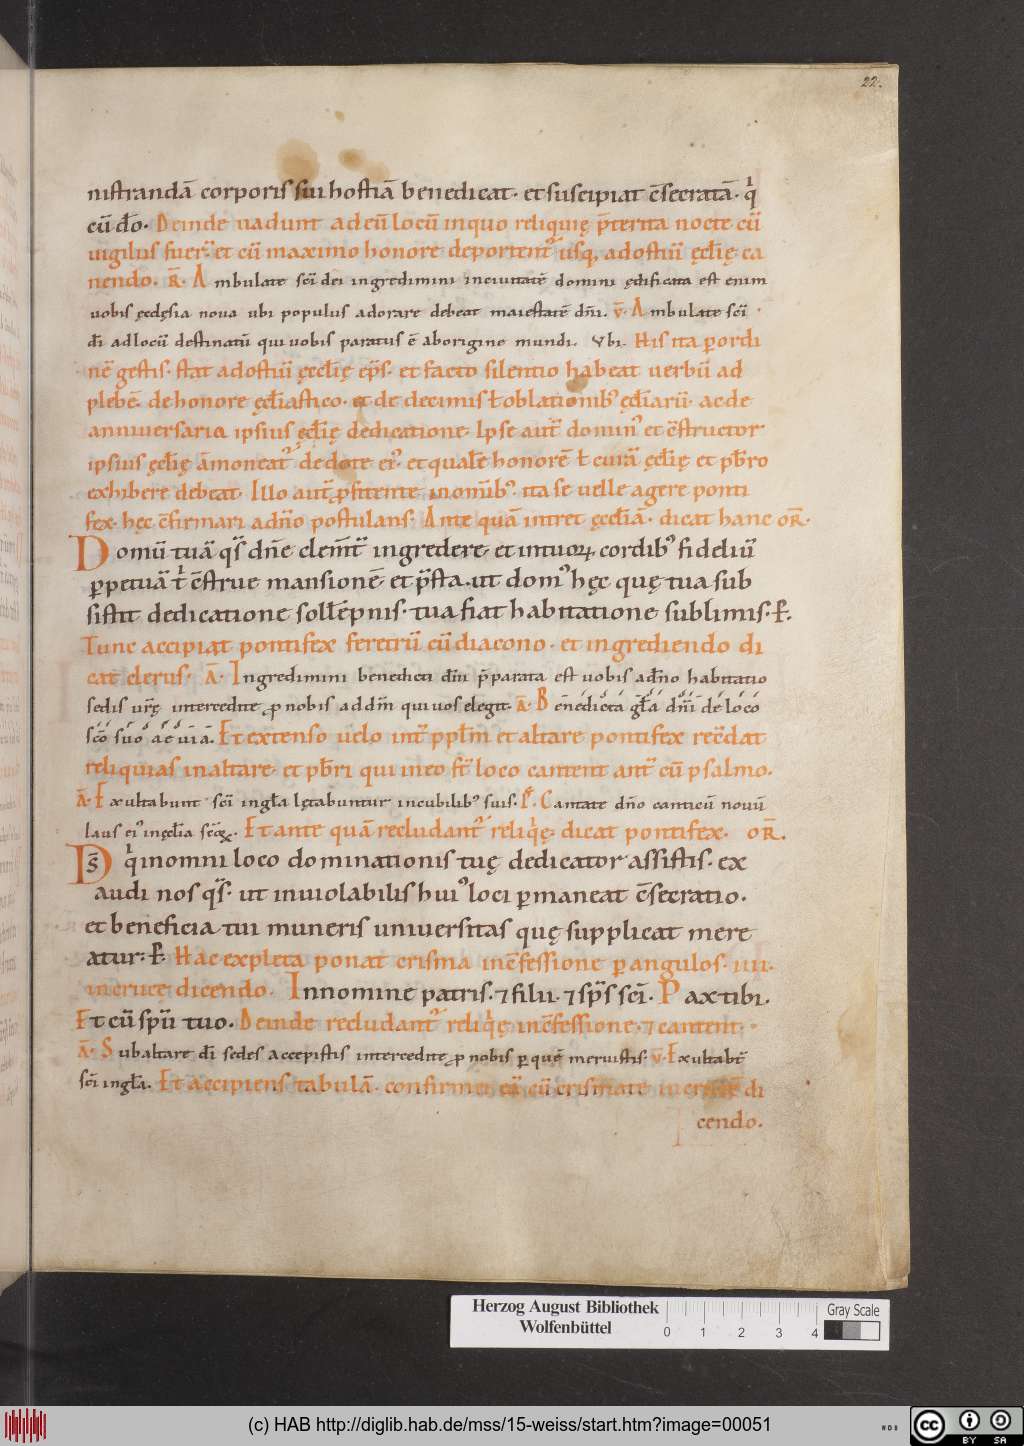 22.
nistrandā corporis sui hostiā benedicat· et suscipiat c̄secratā· q̇
cū dō· Deinde uadunt ad eū locū in quo reliquię p̄terita nocte cū
uigiliis fuer̄· et cū maximo honore deportent᷒ usq; ad ostiū ęcl̄ię· ca
nendo. R̄· Ambulate sc̄i dei ingredimini in ciuitatē domini ędificata est enim
uobis ęcclęsia noua ubi populus adorare debeat maiestatē dn̄i. v̄· Ambulate sc̄i
dī ad locū destinatū qui uobis paratus ē ab origine mundi. Vbi. His ita ꝑ ordi
nē gestis· stat ad ostiū ęccl̄ię ep̄s· et facto silentio habeat uerbū ad
plebē· de honore ęcl̄iastico· et de decimis ł oblationib᷒ ęcl̄iarū· ac de
anniuersaria ipsius ęcl̄ię dedicatione· Ipse aut̄ domin᷒ et c̄structor
ipsius ęcl̄ię āmoneat᷒ de dote ei᷒· et qualē honorē ł curā ęcl̄ię et pb̄ro
exhibere debeat· Illo aut̄ ꝓfitente in omīb᷒· ita se uelle agere ponti
fex· hęc c̄firmari ad n̄io postulans· Ante quā intret ęccl̄iā· dicat hanc OR̄·
Domū tuā qs̄ dn̄e clem̄t̄ ingredere· et in tuoꝝ cordib᷒ fideliū
ꝑpetuā t̍ c̄strue mansionē· et p̄sta· ut dom᷒ hęc quę tua sub
sistit dedicatione sollēpnis· tua fiat habitatione sublimis· ꝑ·
Tunc accipiat pontifex feretrū cū diacono· et ingrediendo di
cat clerus· Ā· Ingredimini benedicti dn̄i p̄parata est uobis a dn̄o habitatio
sedis ur̄ę intercedite ꝓ nobis ad dn̄m qui uos elegit· Ā· Benedicta gl̄a dn̄i de loco
sc̄o suo ac uia. Et extenso uelo int̄ ppl̄m et altare pontifex recōdat
reliquias in altare· et pb̄ri qui in eo st̄ loco cantent ant̄ cū psalmo.
Ā· Exultabunt sc̄i in gl̄a lętabuntur in cubilib᷒ suis· Ps̄· Cantate dn̄o canticū nouū
laus ei᷒ in ęcl̄ia sc̄oꝝ. Et ante quā recludant᷒ reliq̇ę· dicat pontifex· OR̄.
Ds̄ q̇ in omni loco dominationis tuę dedicator assistis· ex
audi nos qs̄· ut inuiolabilis hui᷒ loci ꝑmaneat c̄secratio·
et beneficia tui muneris uniuersitas quę supplicat mere
atur· ꝑ· Hac expleta ponat crisma in c̄fessione ꝑ angulos· iiii·
in crucę dicendo· In nomine patris· ⁊ filii· ⁊ sp̄s sc̄i· Pax tibi·
Et cū sp̄u tuo· Deinde recludant᷒ reliq̇ę in c̄fessione· ⁊ cantent·
Ā· Sub altare dī sedes accepistis intercedite ꝓ nobis ꝑ quē meruistis· v̄· Exultabt̄
sc̄i in gl̄a. Et accipiens tabulā· confirmet eā cū crismate in crucē di
cendo.
Herzog August Bibliothek
Wolfenbüttel
0 1 2 3 4
Gray Scale
(c) HAB http://diglib.hab.de/mss/15-weiss/start.htm?image=00051
cc
BY SA